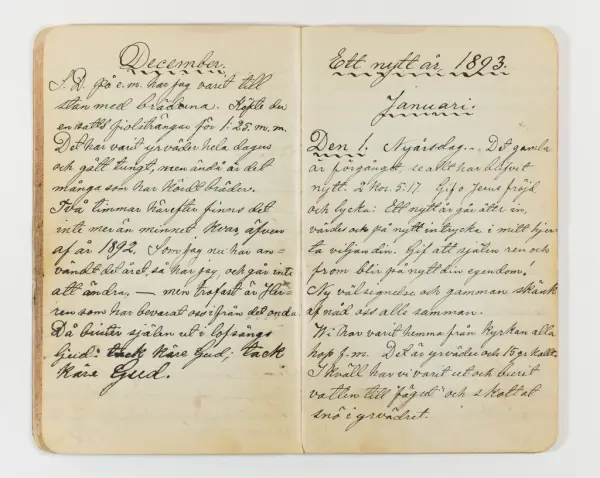 December.
S. D. på e.m. har jag varit till
stan med bräderna. Köpte der
en satts fiolsträngar för 1:25. m.m.
Det har varit yrväder hela dagen
och gått tungt, men ändå är det
många som har kördt bräder.
Två timmar härefter finns det
inte mer än minnet kvar äfven
af år 1892. Som jag nu har an-
vändt det året, så har jag, och går inte
att ändra, — men trofast är Her-
ren som har bevarat oss ifrån det onda.
Då brister själen ut i lofsång
Gud: tack käre Gud, tack
käre Gud.
Ett nytt år 1893.
Januari.
Den 1. Nyårsdag. Det gamla
är förgånget, se allt har blifvit
nytt. 2 Kor. 5:17 Gif o Jesus fröjd
och lycka: Ett nytt år går åter in,
värdes och på nytt intrycka i mitt hjer-
ta viljan din. Gif att själen ren och
from blir på nytt din egendom!
Ny välsignelse och gamman skänk
af nåd oss alla samman.
Vi har varit hemma från kyrkan alla
hop f.m. Det är yrväder och 15 gr kallt.
I kväll har vi varit ut och burit
vatten till "fägret" och skottat
snö i yrvädret.